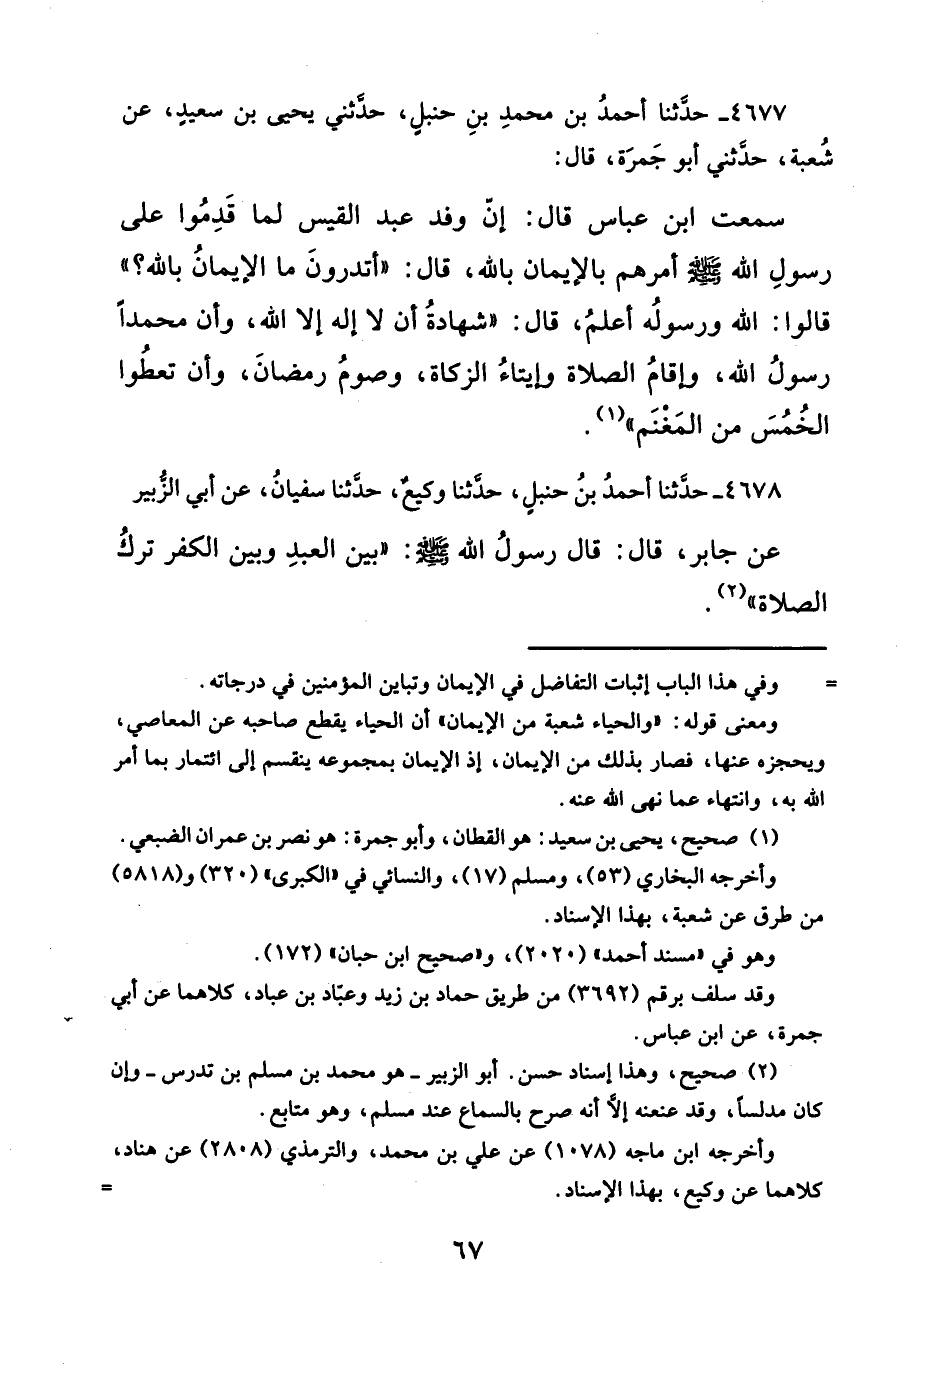 ٤٦٧٧ـ حدَّثنا أحمدُ بن محمدِ بنِ حنبلٍ، حدَّثني يحيى بن سعيدٍ، عن
شُعبة، حدَّثني أبو جَمرَة، قال:
سمعت ابن عباس قال: إنّ وفد عبد القيس لما قَدِمُوا على
رسولِ الله ﷺ أمرهم بالإيمان بالله، قال: «أتدرونَ ما الإيمانُ بالله؟»
قالوا: الله ورسولُه أعلمُ، قال: «شهادةُ أن لا إله إلا الله، وأن محمداً
رسولُ الله، وإقامُ الصلاة وإيتاءُ الزكاة، وصومُ رمضانَ، وأن تعطُوا
الخُمُسَ من المَغْنَم»(١).
٤٦٧٨ـ حدَّثنا أحمدُ بنُ حنبلٍ، حدَّثنا وكيعٌ، حدَّثنا سفيانُ، عن أبي الزُّبير
عن جابر، قال: قال رسولُ الله ﷺ: «بين العبدِ وبين الكفر تركُ
الصلاة»(٢).
= وفي هذا الباب إثبات التفاضل في الإيمان وتباين المؤمنين في درجاته.
ومعنى قوله: «والحياء شعبة من الإيمان» أن الحياء يقطع صاحبه عن المعاصي،
ويحجزه عنها، فصار بذلك من الإيمان، إذ الإيمان بمجموعه ينقسم إلى ائتمار بما أمر
الله به، وانتهاء عما نهى الله عنه.
(١) صحيح، يحيى بن سعيد: هو القطان، وأبو جمرة: هو نصر بن عمران الضبعي.
وأخرجه البخاري (٥٣)، ومسلم (١٧)، والنسائي في «الكبرى» (٣٢٠) و(٥٨١٨)
من طرق عن شعبة، بهذا الإسناد.
وهو في «مسند أحمد» (٢٠٢٠)، و«صحيح ابن حبان» (١٧٢).
وقد سلف برقم (٣٦٩٢) من طريق حماد بن زيد وعبّاد بن عباد، كلاهما عن أبي
جمرة، عن ابن عباس.
(٢) صحيح، وهذا إسناد حسن. أبو الزبير ـ هو محمد بن مسلم بن تدرس ـ وإن
كان مدلساً، وقد عنعنه إلاَّ أنه صرح بالسماع عند مسلم، وهو متابع.
وأخرجه ابن ماجه (١٠٧٨) عن علي بن محمد، والترمذي (٢٨٠٨) عن هناد،
كلاهما عن وكيع، بهذا الإسناد. =
٦٧